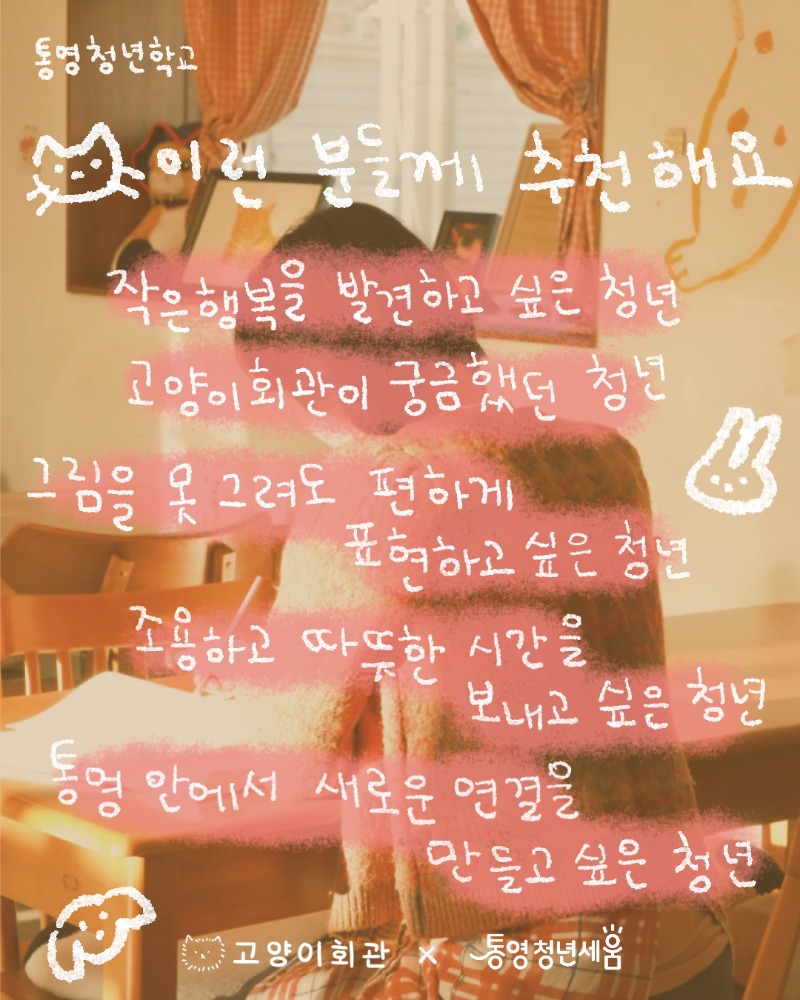 통영청년학교
이런 분들께 추천해요
작은행복을 발견하고 싶은 청년
고양이회관이 궁금했던 청년
그림을 못 그려도 편하게
표현하고 싶은 청년
조용하고 따뜻한 시간을
보내고 싶은 청년
통영 안에서 새로운 연결을
만들고 싶은 청년
고양이회관 × 통영청년세움